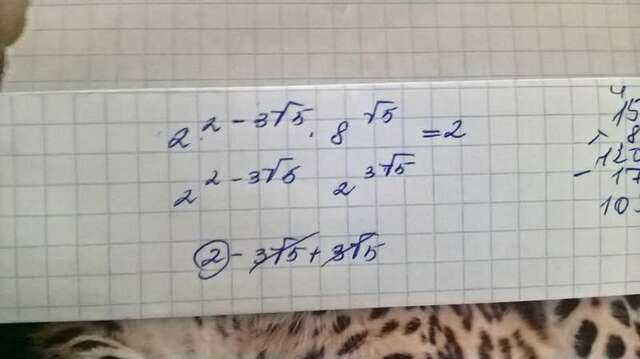 2^{2-3√5} · 8^{√5} = 2
2^{2-3√5} 2^{3√5}
2 - 3√5 + 3√5
15
8
120
- 17
10